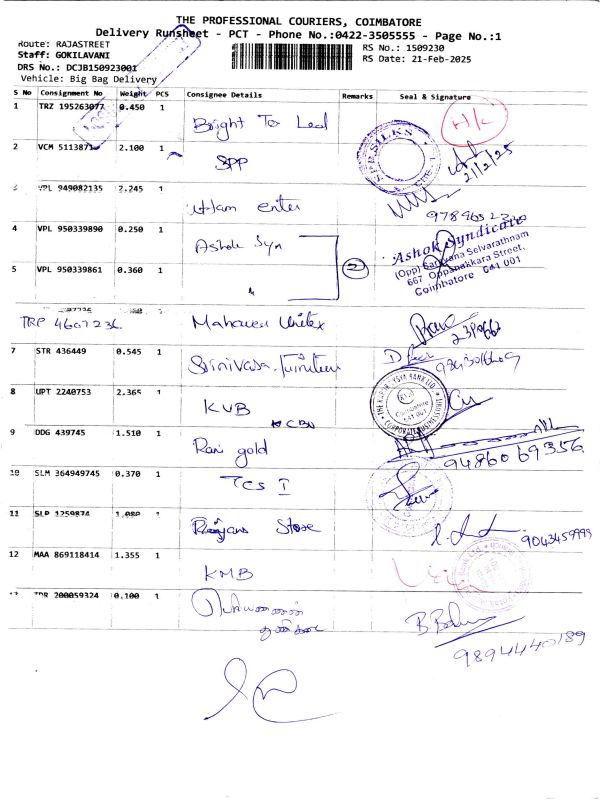 THE PROFESSIONAL COURIERS, COIMBATORE
Delivery Runsheet - PCT - Phone No.:0422-3505555 - Page No.:1
Route: RAJASTREET
RS No.: 1509230
Staff: GOKILAVANI
RS Date: 21-Feb-2025
DRS No.: DCJB150923001
Vehicle: Big Bag Delivery
S No Consignment No Weight PCS Consignee Details Remarks Seal & Signature
1 TRZ 195263077 0.450 1 Bright To Leal H/C
2 VCM 511387 2.100 1 SPP 21/2/25
3 VPL 949082135 2.245 1 uttam enter
4 VPL 950339890 0.250 1 Ashok Syn
Ashok Syndicate
(Opp) Saravana Selvarathnam
667 Oppanakkara Street,
Coimbatore 641 001
5 VPL 950339861 0.360 1 " 2
TRP 4607236 Mahaveer Unitex
7 STR 436449 0.545 1 Srinivasa Furniture
8 UPT 2240753 2.365 1 KVB
CBU
9 DDG 439745 1.510 1 Rani gold 9486069356
10 SLM 364949745 0.370 1 TCS I
11 SLP 1259874 1.080 1 Store 9043459999
12 MAA 869118414 1.355 1 KMB
13 TDR 200059324 0.100 1
9894440189